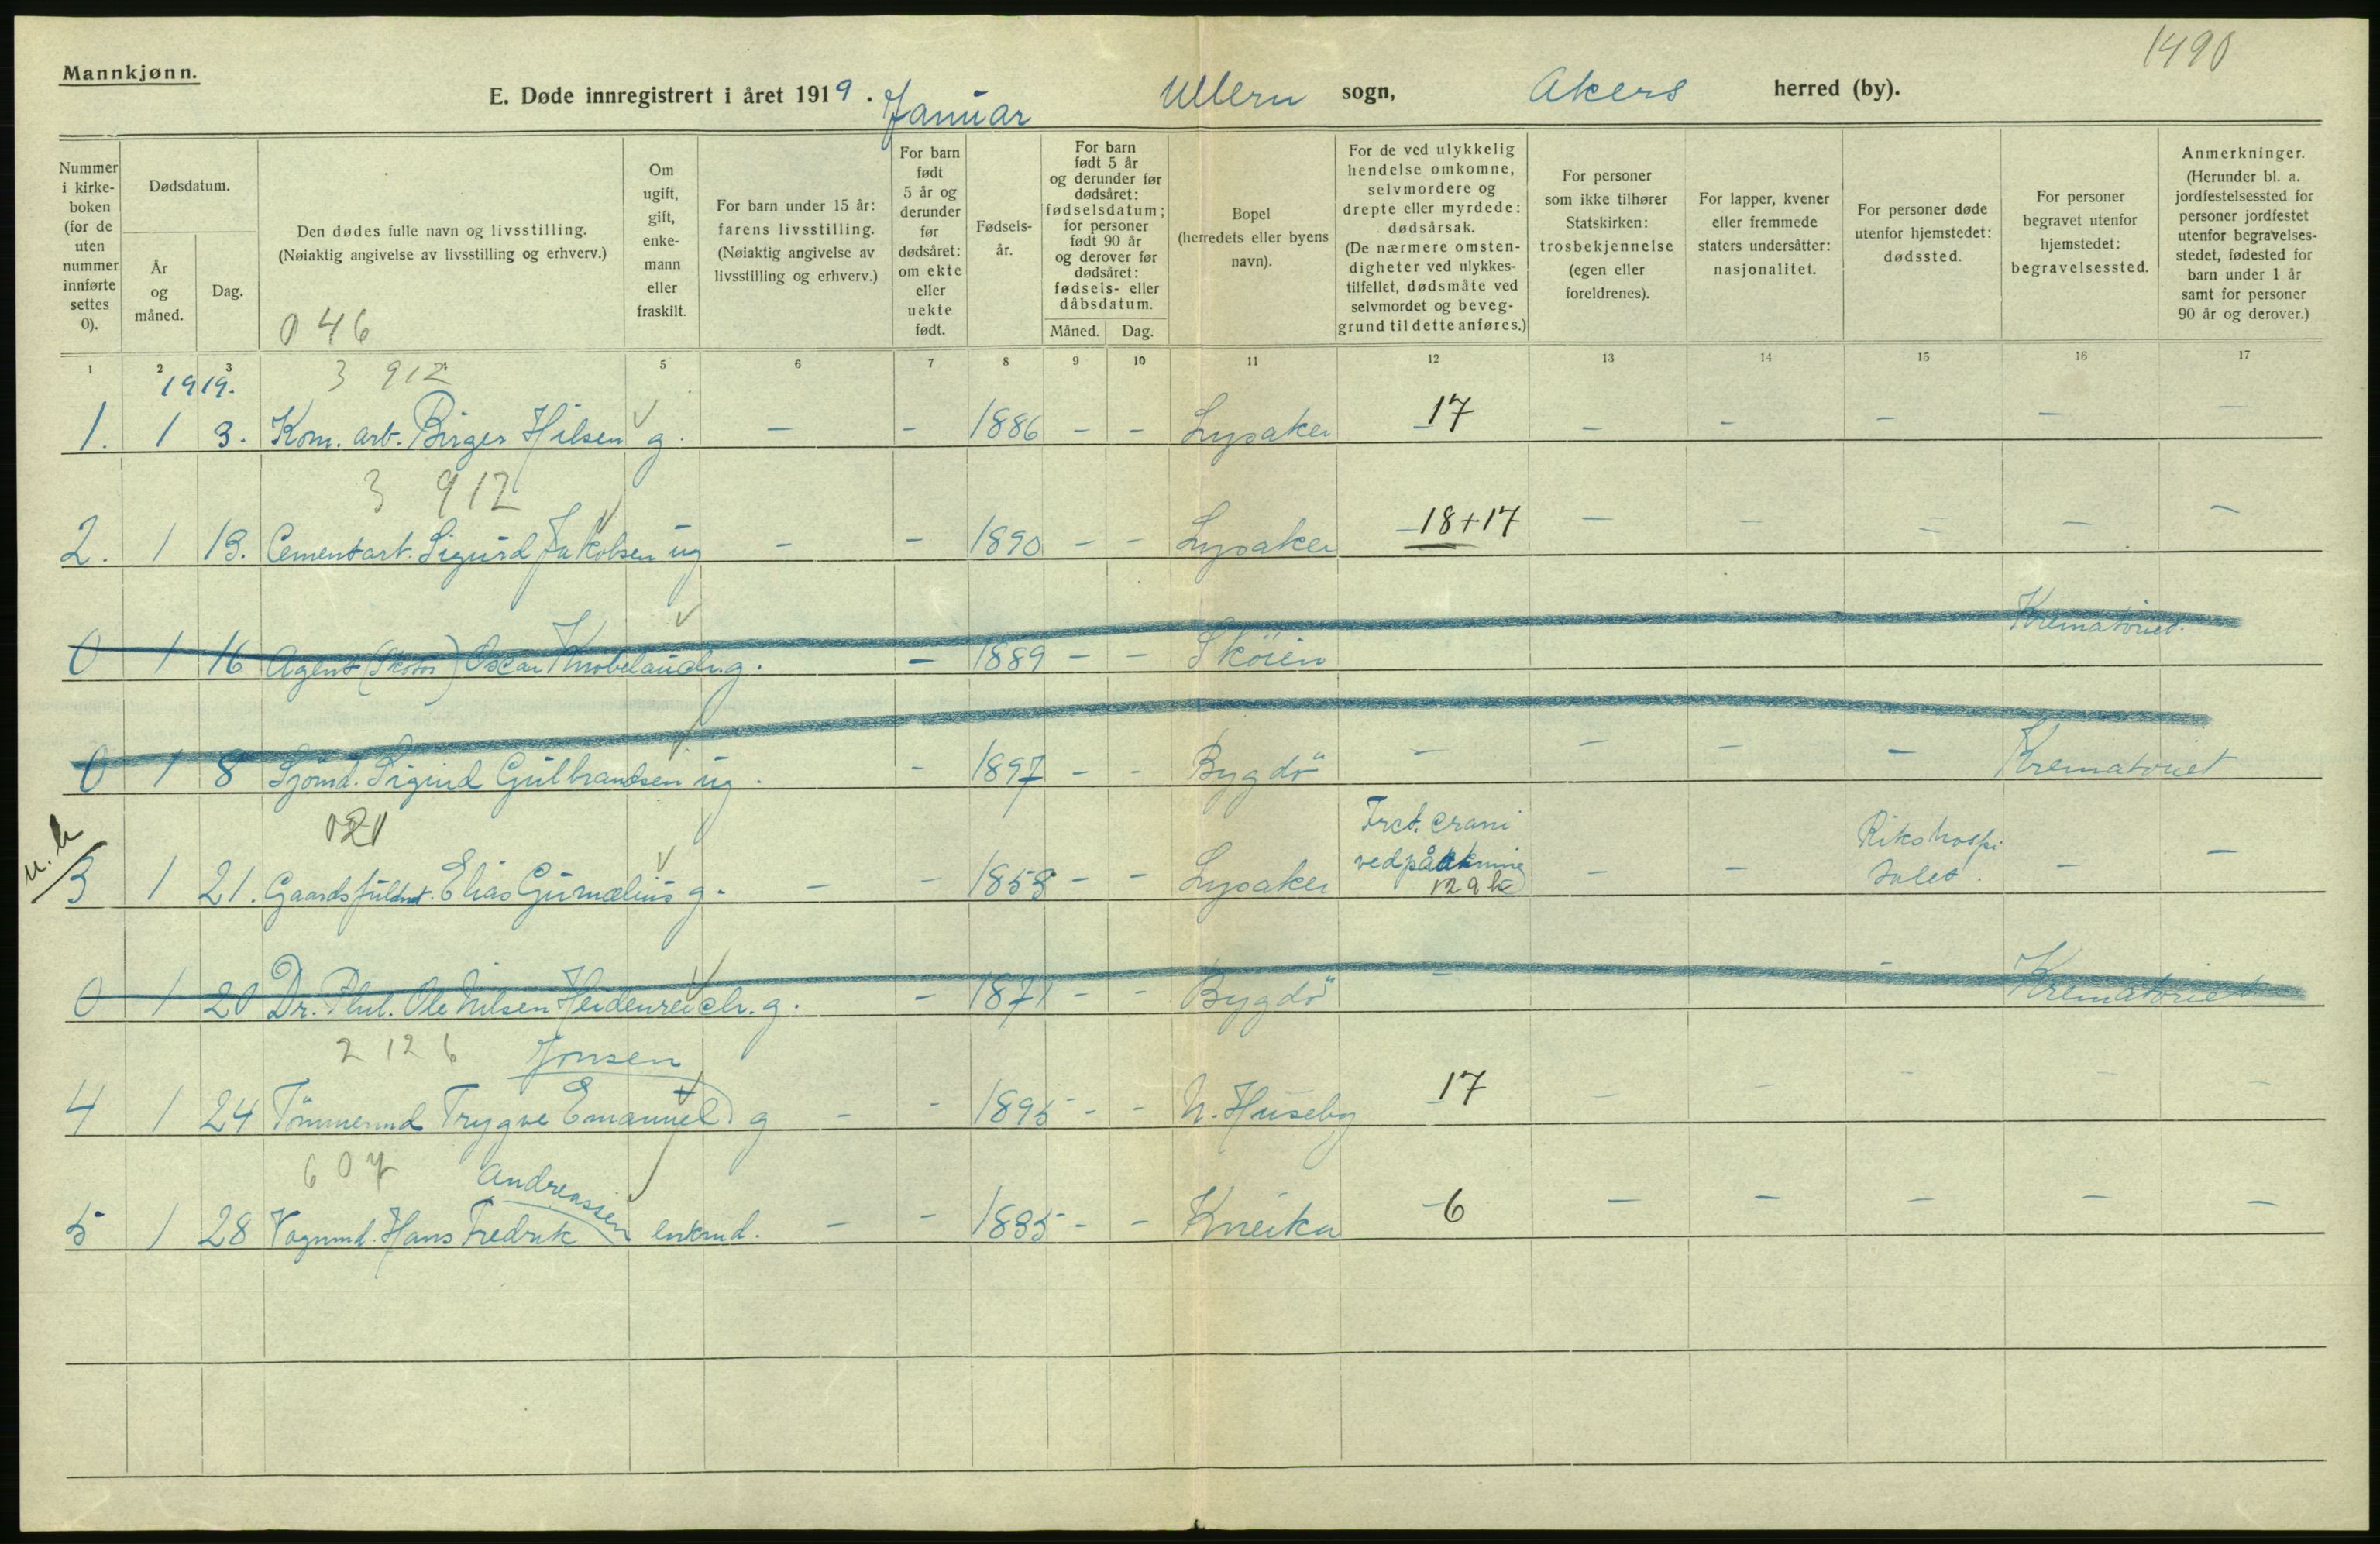 1490
Mannkjønn.
E. Døde innregistrert i året 1919. Januar Ullern sogn, Akers herred (by).
Nummer i kirkeboken (for de uten nummer innførte settes 0).
Dødsdatum.
År og måned.
Dag.
Den dødes fulle navn og livsstilling.
(Nøiaktig angivelse av livsstilling og erhverv.)
046
Om ugift, gift, enkemann eller fraskilt.
For barn under 15 år: farens livsstilling. (Nøiaktig angivelse av livsstilling og erhverv.)
For barn født 5 år og derunder før dødsåret: om ekte eller uekte født.
Fødselsår.
For barn født 5 år og derunder før dødsåret: fødselsdatum; for personer født 90 år og derover før dødsåret: fødsels- eller dåbsdatum.
Måned. Dag.
Bopel (herredets eller byens navn).
For de ved ulykkelig hendelse omkomne, selvmordere og drepte eller myrdede: dødsårsak. (De nærmere omstendigheter ved ulykkestilfellet, dødsmåte ved selvmordet og beveggrund til dette anføres.)
For personer som ikke tilhører Statskirken: trosbekjennelse (egen eller foreldrenes).
For lapper, kvener eller fremmede staters undersåtter: nasjonalitet.
For personer døde utenfor hjemstedet: dødssted.
For personer begravet utenfor hjemstedet: begravelsessted.
Anmerkninger. (Herunder bl. a. jordfestelsessted for personer jordfestet utenfor begravelsesstedet, fødested for barn under 1 år samt for personer 90 år og derover.)
1 2 3 5 6 7 8 9 10 11 12 13 14 15 16 17
1919. 3 912
1. 1 3. Kom. arb. Birger Hilsen g. - - 1886 - - Lysaker 17 - - - - -
3 912
2. 1 13. Cementarb. Sigurd Jakobsen ug - - 1890 - - Lysaker -18+17 - - - - -
0 1 16 Agent Oscar Knobelauch. g. - 1889 - - Skøien Krematoriet.
0 1 8 Sjømd. Sigurd Gulbrandsen ug. - 1897 - - Bygdö - - - - Krematoriet
021
3 1 21. Elias g. - - 1858 - - Lysaker Frct. crani - - Rikshospitalet. - -
0 1 20 Dr. Phil. Ole Nilsen Heidenreich. g. - 1871 - - Bygdö - - Krematoriet
2 126 Jonsen
4 1 24 Tömmermd Trygve Emanuel g - - 1895 - - N. Huseby 17 - - - - -
607 Andreassen
5 1 28 Vognmd. Hans Fredrik enkmd. - - 1835 - - Kneika -6 - - - - -